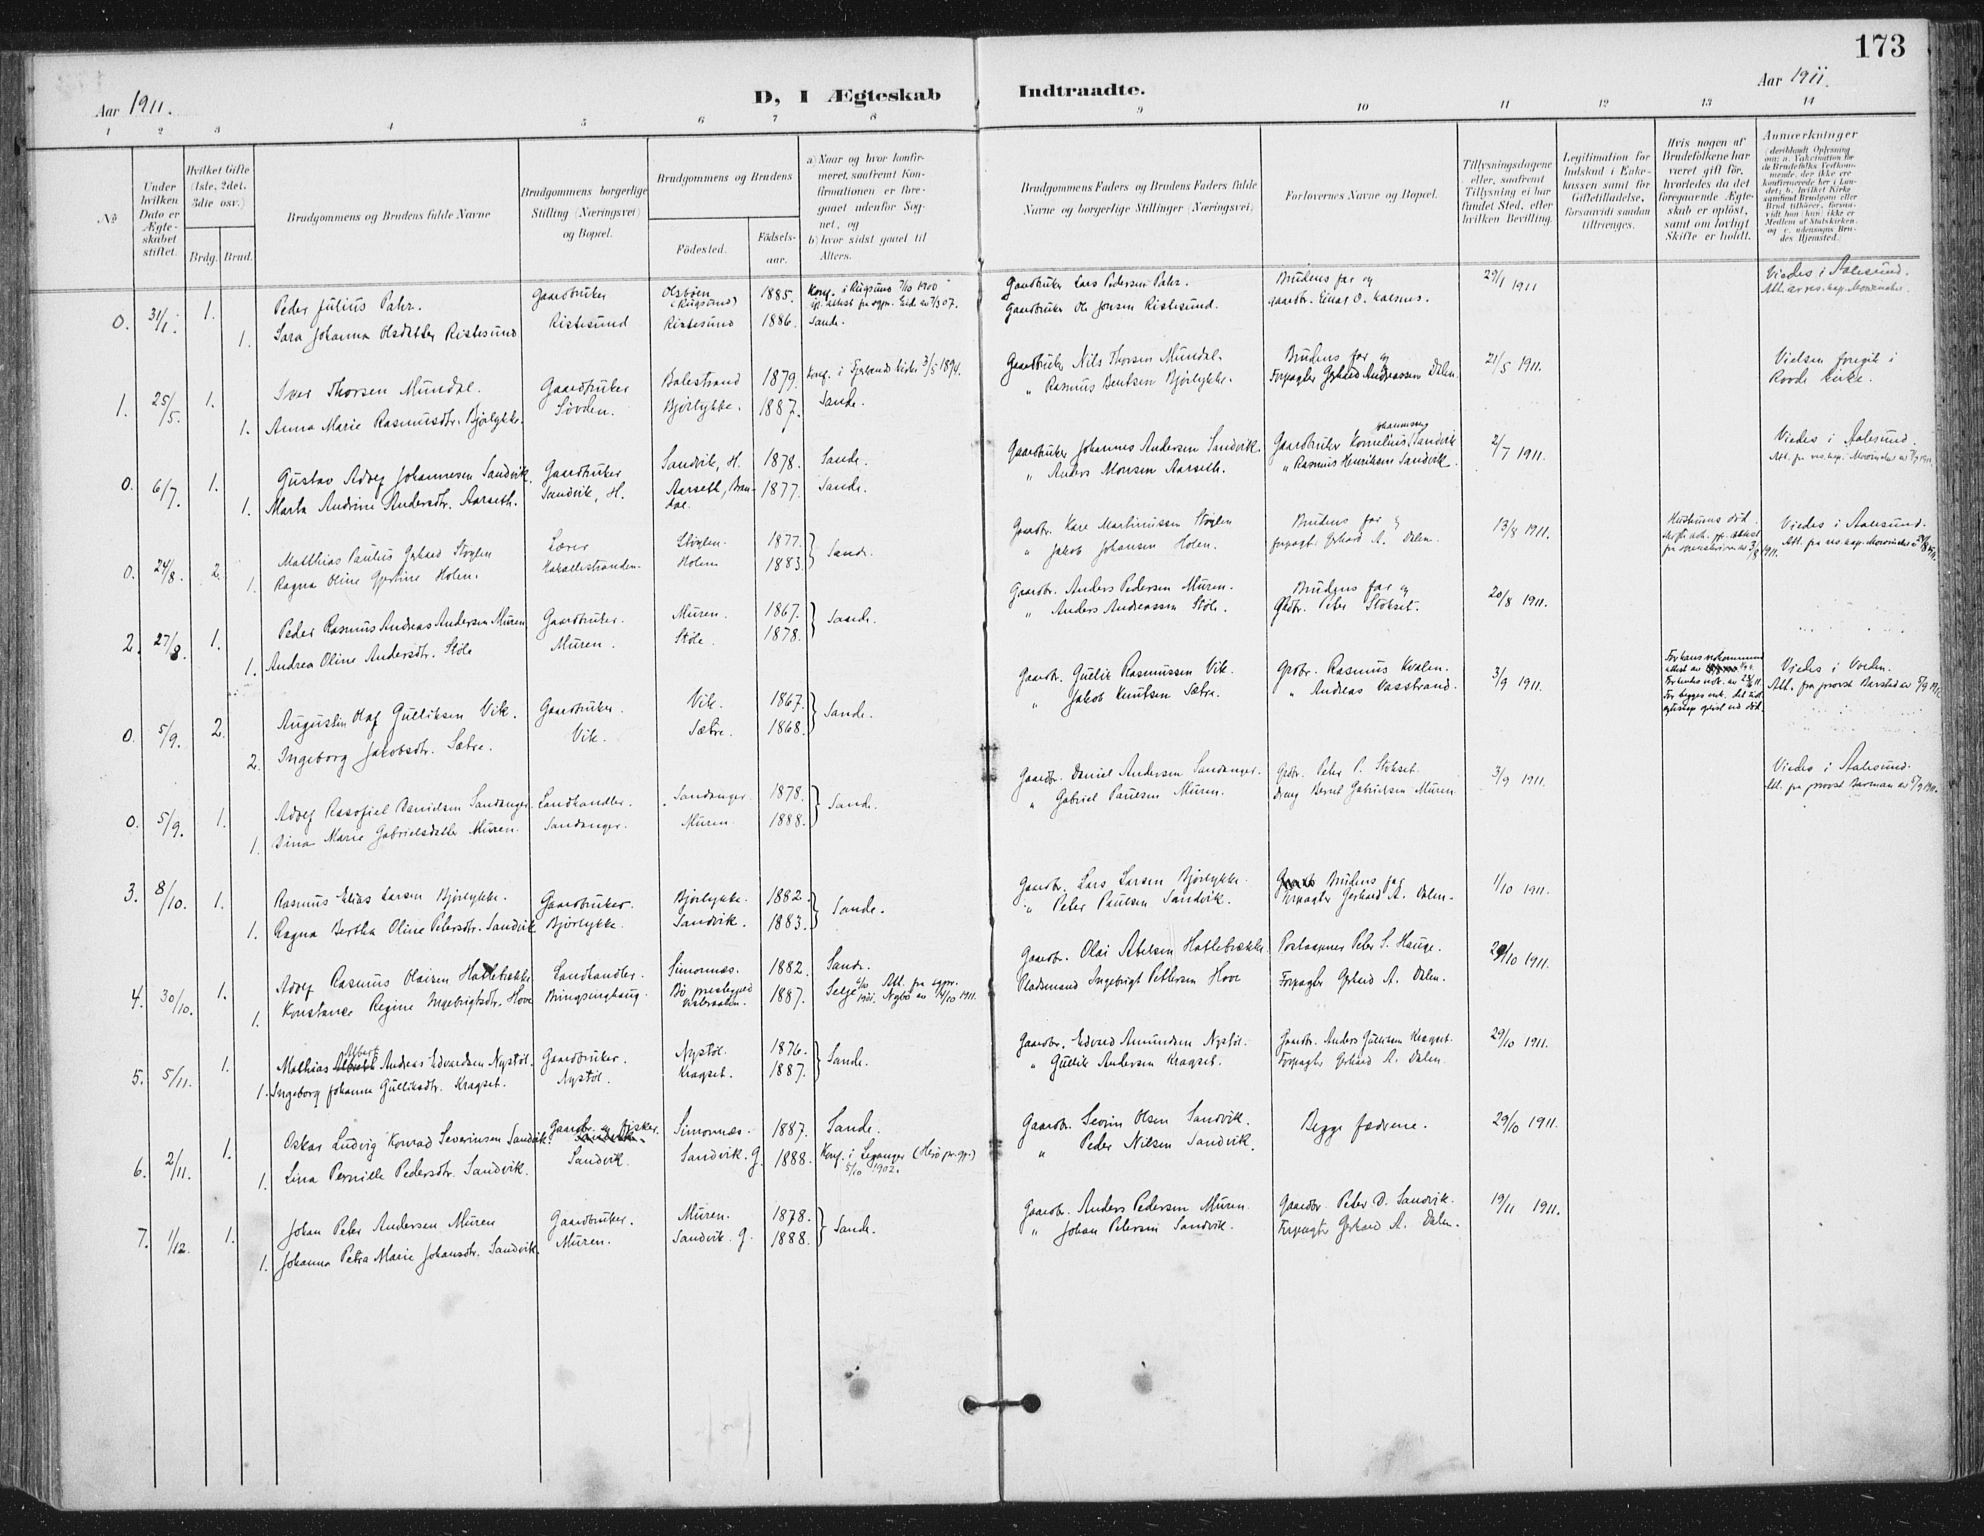 173
Aar 1911.
D, I Ægteskab Indtraadte.
Aar 1911.
1 2 3 4 5 6 7 8 9 10 11 12 13 14
No
Under hvilken Dato er Ægteskabet stiftet.
Hvilket Gifte (1ste, 2det, 3die osv.)
Brdg. Brud.
Brudgommens og Brudens fulde Navne
Brudgommens borgerlige Stilling (Næringsvei) og Bopæl.
Brudgommens og Brudens
Fødested.
Fødselsaar.
a) Naar og hvor konfirmeret, saafremt Konfirmationen er foregaaet udenfor Sognet, og
b) hvor sidst gaaet til Alters.
Brudgommens Faders og Brudens Faders fulde Navne og borgerlige Stillinger (Næringsvei)
Forlovernes Navne og Bopæl.
Tillysningsdagene eller, saafremt Tillysning ei har fundet Sted, efter hvilken Bevilling.
Legitimation for Indskud i Enkekassen samt for Giftetilladelse, forsaavidt saadan tiltrænges.
Hvis nogen af Brudefolkene har været gift før, hvorledes da det foregaaende Ægteskab er opløst, samt om lovligt Skifte er holdt.
Anmærkninger
0. 31/1. 1. Peder Julius Pahr. Gaardbruker 1885. Konf. i Rugsund 7/10 1900 Gaardbruker Lars Pedersen Pahr. Brudens far og 29/1 1911 Viedes i Aalesund.
1. Sara Johanna Olsdatter Ristesund Ristesund Ristesund 1886. Sande. Gaardbruker Ole Jonsen Ristesund.
1. 25/5. 1. Iver Thorsen Mundal. Gaardbruker Balestrand 1879. Konf. i Fjærlands kirke 3/5 1894. Gaardbruker Nils Thorsen Mundal. Brudens far og 21/5 1911. Vielsen foregik i
1. Anna Marie Rasmusdtr. Bjørlykke. Søvden. Bjørlykke. 1887. Sande. " Rasmus Bentsen Bjørlykke. Forpagter Gerhard Andreassen Dalen. Rovde kirke.
0. 6/7. 1. Gustav Adolf Johannesen Sandvik. Gaardbruker Sandvik, H. 1878. Sande. Gaardbruker Johannes Andersen Sandvik. Gaardbruker Kornelius Johannesen Sandvik 2/7 1911. Viedes i Aalesund.
1. Marta Andrine Andersdtr. Aarseth. Sandvik, H. Aarseth, Brandal. 1877. Sande. " Anders Monsen Aarseth. " Rasmus Henriksen Sandvik.
0. 24/8. 2. Matthias Paulus Gerhard Støylen Lærer Støylen. 1877. Sande. Gaardbr. Kare Martinussen Støylen Brudens far og 13/8 1911. Hustruens død. Viedes i Aalesund.
1. Ragna Oline Gjertine Holen. Hakallestranden. Holen 1883. " Jakob Johansen Holen. forpagt. Gerhard A. Dalen.
2. 27/8. 1. Peder Rasmus Andreas Andersen Muren Gaardbruker. Muren. 1867. Sande. Gaardbr. Anders Pedersen Muren. Brudens far og 20/8 1911.
1. Andrea Oline Andersdtr. Støle Muren. Støle. 1878. " Anders Andreassen Støle. Grdbr. Peter Stokset.
0. 5/9. 2. Augustin Olaf Gulliksen Vik. Gaardbruker. Vik. 1867. Sande. Gaardb. Gullik Rasmussen Vik. Grdbr. Rasmus Kvalen. 3/9 1911. Viedes i Volden.
2. Ingeborg Jakobsdtr. Sætre. Vik. Sætre. 1868. " Jakob Knutsen Sætre. " Andreas Vasstrand.
0. 5/9. 1. Adolf Rasofiel Danielsen Sandanger. Landhandler. Sandanger. 1878. Sande. Gaardbr. Daniel Andersen Sandanger. Grdbr. Peter P. Stokset. 3/9 1911. Viedes i Aalesund.
1. Dina Marie Gabrielsdatter Muren. Sandanger. Muren. 1888. " Gabriel Paulsen Muren. Dreng Bernt Gabrielsen Muren
3. 8/10. 1. Rasmus Elias Larsen Bjørlykke. Gaardbruker. Bjørlykke. 1882. Sande. Gaardbr. Lars Larsen Bjørlykke. Brudens far 1/10 1911.
1. Ragna Bertha Oline Petersdtr. Sandvik Bjørlykke. Sandvik. 1883. " Peter Paulsen Sandvik. Forpagter Gerhard A. Dalen.
4. 30/10. 1. Adolf Rasmus Olaisen Hatlebrække Landhandler. Simonnæs. 1882. Sande. Gaardbr. Olai Abelsen Hatlebrække. Postaapner Peter S. Hauge. 29/10 1911.
1. Konstance Regine Ingebrigtsdtr. Hove Bringsinghaug. 1887. Selje Pladsmand Ingebrigt Pettersen Hove Forpagter Gerhard A. Dalen.
5. 5/11. 1. Mathias Albert Andreas Edvardsen Nystøl. Gaardbruker. Nystøl. 1876. Sande. Gaardbr. Edvard Amundsen Nystøl. Gaardbr. Anders Gulliksen Kragset. 29/10 1911.
1. Ingeborg Johanne Gulliksdtr. Kragset. Nystøl. Kragset. 1887. " Gullik Andersen Kragset. Forpagter Gerhard A. Dalen.
6. 2/11. 1. Oskar Ludvig Konrad Severinsen Sandvik. Gaardbr. og fisker. Simonnæs. 1887. Sande. Gaardbr. Sevrin Olsen Sandvik. Begge fædrene. 29/10 1911.
1. Lina Pernille Pedersdtr. Sandvik. Sandvik. Sandvik. G. 1888. Konf. i Leganger (Herø pr.gj.) 5/10 1902. " Peder Nilsen Sandvik.
7. 1/12. 1. Johan Peter Andersen Muren Gaardbruker. Muren. 1878. Sande. Gaardbr. Anders Pedersen Muren. Gaardbr Peter D. Sandvik. 19/11 1911.
1. Johanna Petra Marie Johansdtr. Sandvik. Muren. Sandvik. G. 1888. " Johan Petersen Sandvik. Forpagter Gerhard A. Dalen.